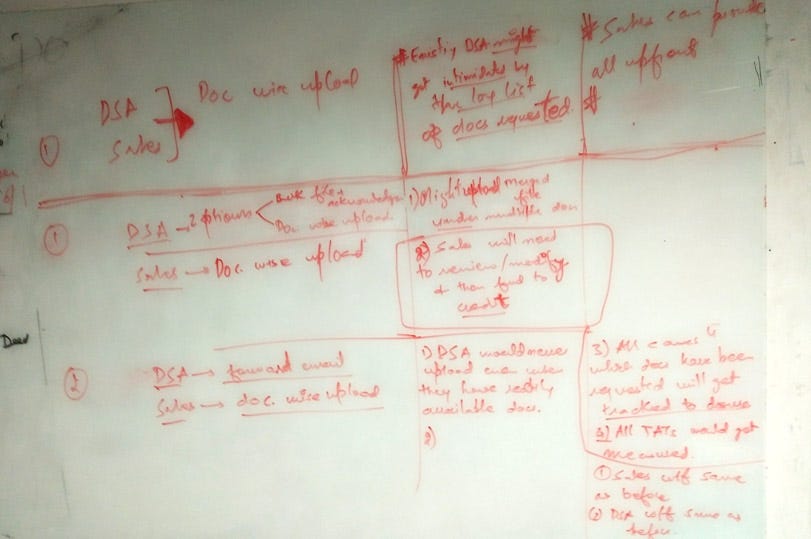 DSA
Sales
Doc wise upload
# Existing DSA might
get intimidated by
this long list
of docs requested.
# Sales can provide
all upfront
#
1
DSA → 2 options
Bulk file +
Doc wise upload
Sales → Doc. wise upload
1) Might upload merged
file
under multiple docs
2) Sales will need
to review/modify
& then fwd to
credit
2
DSA → forward email
Sales → doc. wise upload
1) DSA would never
upload even when
they have readily
available docs.
2)
3) All cases
where docs have been
requested will get
tracked to
4) All TATs would get
measured.
1 Sales w/f same
as before
2 DSA w/f same as
before.
Deed